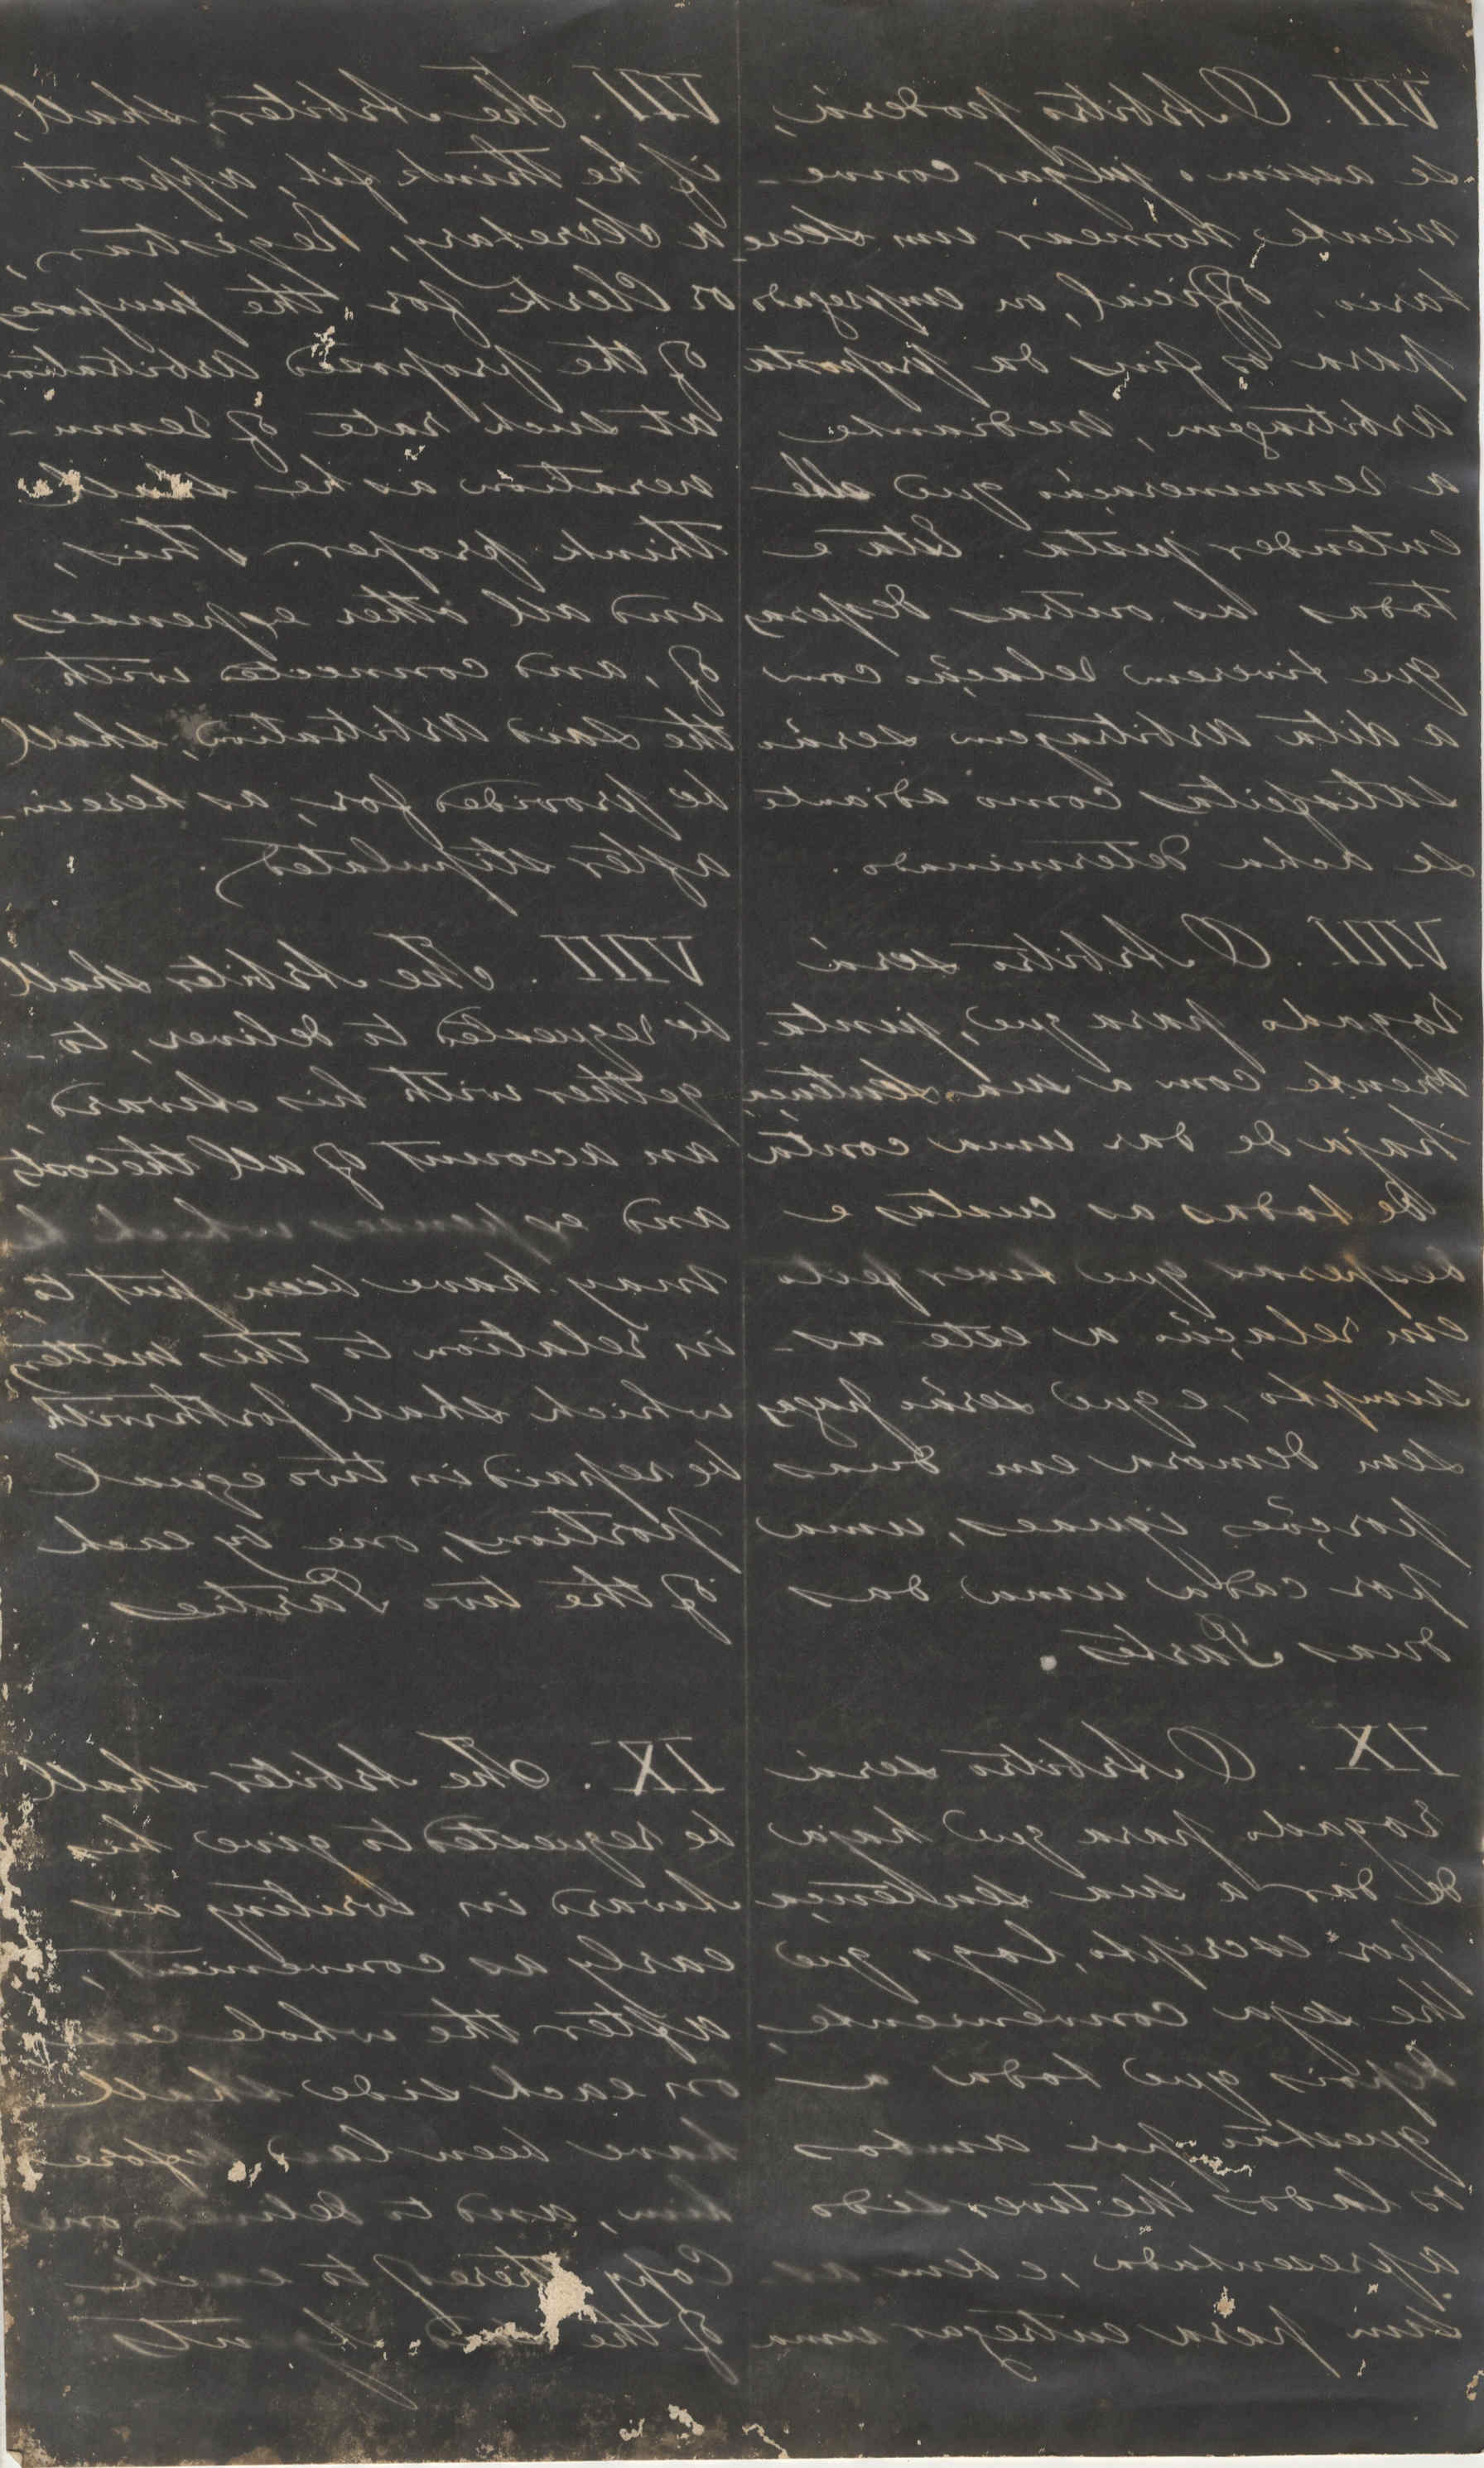 VII. O Arbitro poderá,
se assim o julgar conve-
niente, nomear um Secre-
tario, Official, ou empregado
para os fins da proposta
Arbitragem, mediante
a remuneração que elle
entender justa. Esta e
todas as outras despezas
que tiverem relação com
a dita Arbitragem serão
satisfeitas como adiante
se acha determinado.
VIII. O Arbitro será
rogado para que, junta-
mente com a sua Sentença,
haja de dar uma conta
de todas as custas e
despesas que tiver feito
em relação a este as-
sumpto, e que serão pagas
sem demora em duas
porções iguaes, uma
por cada uma das
duas Partes.
IX. O Arbitro será
rogado para que haja
de dar a sua Sentença
por escripto, logo que
lhe seja conveniente,
depois que toda a
questão por ambos
os lados lhe tiver sido
apresentada, e bem as-
sim para entregar uma
VII. The Arbiter, shall,
if he think fit, appoint
a Secretary, Registrar,
or Clerk for the purposes
of the proposed Arbitration
at such rate of remu-
neration as he shall
think proper. This,
and all other expenses
of, and connected with
the said Arbitration, shall
be provided for, as herein-
after stipulated.
VIII. The Arbiter shall
be requested to deliver, to-
gether with his Award
an account of all the costs
and expenses which he
may have been put to
in relation to this matter,
which shall forthwith
be repaid in two equal
portions, one by each
of the two Parties
IX. The Arbiter shall
be requested to give his
Award in writing as
early as convenient,
after the whole case
on each side shall
have been laid before
him, and to deliver one
Copy thereof to each
of the said